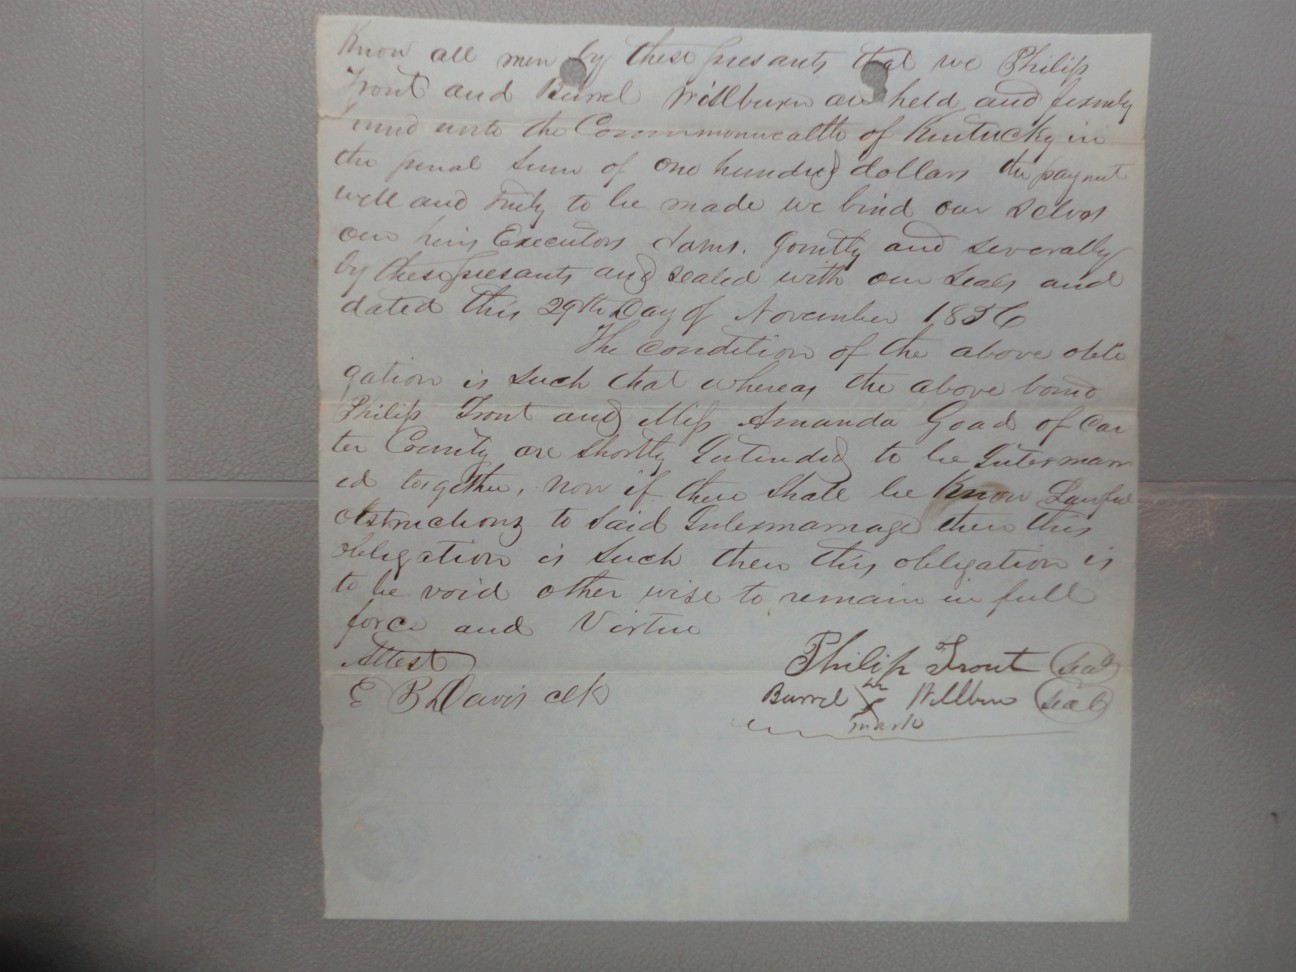 Know all men by these presants that we Philip
Trout and Burrel Willburn are held and firmly
bund unto the Commonwealth of Kentucky in
the penal Sum of one hundred dollars the paymet
well and truly to be made we bind our selves
our heirs Executors &ams. Jointly and severally
by these presants and sealed with our seals and
dated this 29th Day of November 1856
The condition of the above obli
gation is such that whereas the above bound
Philip Trout and Miss Amanda Goad of Car
ter County are shortly Intended to be Intermarri
ed together, now if there Shall be Know Lawful
obstructions to said Intermarriage then this
obligation is such then this obligation is
to be void other wise to remain in full
force and Virtue
Attest
Philip Trout Seal
E B Davis clk
Burrel his x mark Willburn Seal